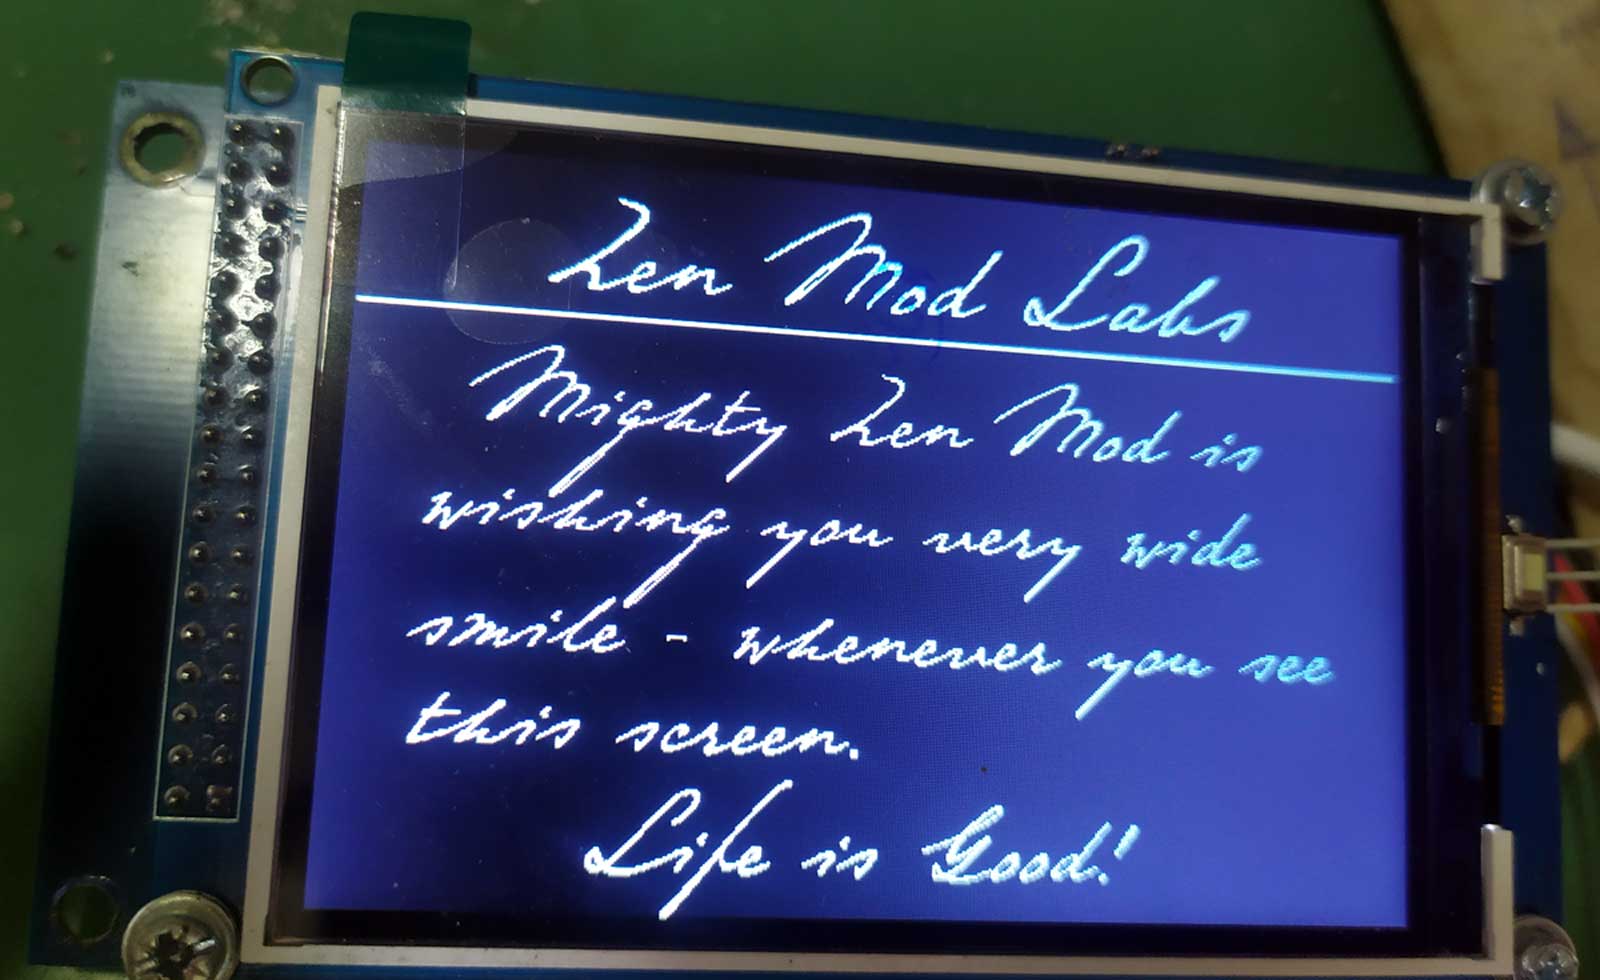 Zen Mod Labs
Mighty Zen Mod is
wishing you very wide
smile - whenever you see
this screen.
Life is Good!